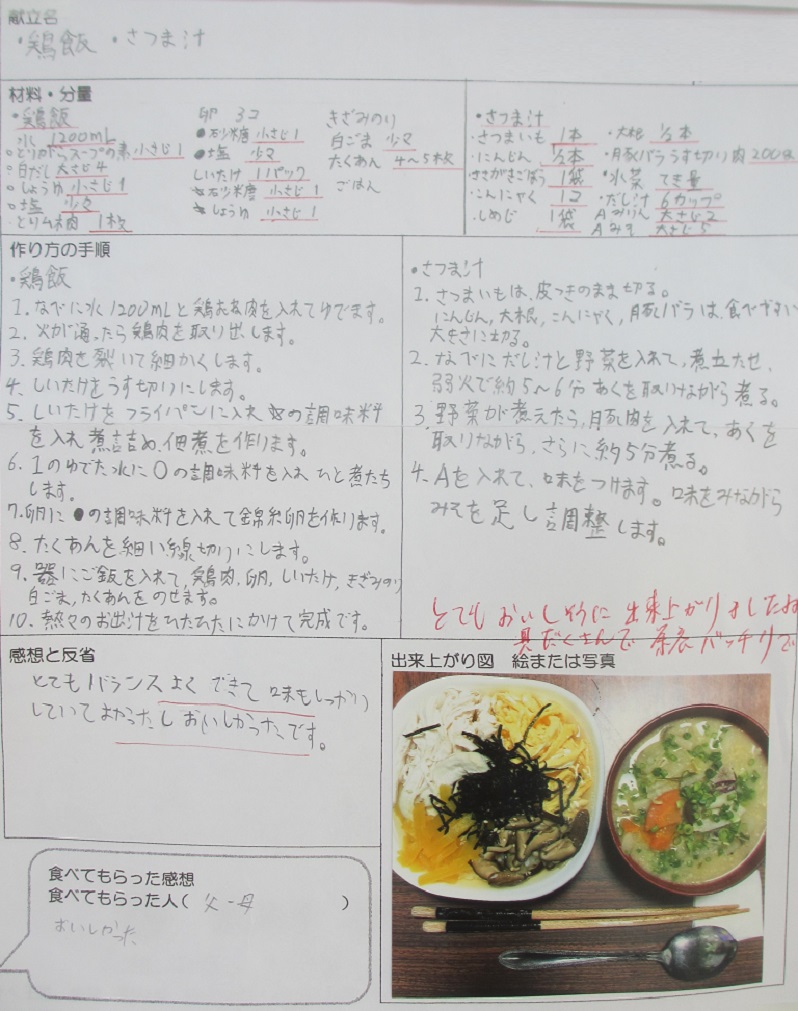 献立名
・鶏飯 ・さつま汁
材料・分量
・鶏飯
水 1200mL
○とりがらスープの素 小さじ1
○白だし 大さじ4
○しょうゆ 小さじ1
○塩 少々
・とりムネ肉 1枚
卵 3コ
●石少糖 小さじ1
●塩 少々
しいたけ 1パック
☆石少糖 小さじ1
☆しょうゆ 小さじ1
きざみのり
白ごま 少々
たくあん 4〜5枚
ごはん
・さつま汁
・さつまいも 1本
・にんじん 1/2本
・ささがきごぼう 1袋
・こんにゃく 1コ
・しめじ 1袋
・大根 1/2本
・豚バラうす切り肉 200g
・水菜 てき量
・だし汁 6カップ
Aみりん 大さじ2
Aみそ 大さじ5
作り方の手順
・鶏飯
1. なべに水1200mLと鶏むね肉を入れてゆでます。
2. 火が通ったら鶏肉を取り出します。
3. 鶏肉を裂いて細かくします。
4. しいたけをうす切りにします。
5. しいたけをフライパンに入れ☆の調味料
を入れ煮詰め、佃煮を作ります。
6. 1のゆでた水に○の調味料を入れひと煮たち
します。
7. 卵に●の調味料を入れて錦糸卵を作ります。
8. たくあんを細い線切りにします。
9. 器にご飯を入れて、鶏肉、卵、しいたけ、きざみのり
白ごま、たくあんをのせます。
10. 熱々のお出汁をひたひたにかけて完成です。
・さつま汁
1. さつまいもは、皮つきのまま切る。
にんじん、大根、こんにゃく、豚バラは、食べやすい
大きさに切る。
2. なべにだし汁と野菜を入れて、煮立たせ、
弱火で約5〜6分あくを取りながら煮る。
3. 野菜が煮えたら、豚肉を入れて、あくを
取りながら、さらに約5分煮る。
4. Aを入れて、味をつけます。味をみながら
みそを足し調整します。
とてもおいしそうに出来上がりましたね
具だくさんで 栄養バッチリで
感想と反省
とてもバランスよくできて味もしっかり
していてよかったしおいしかったです。
食べてもらった感想
食べてもらった人( 父・母 )
おいしかった
出来上がり図 絵または写真